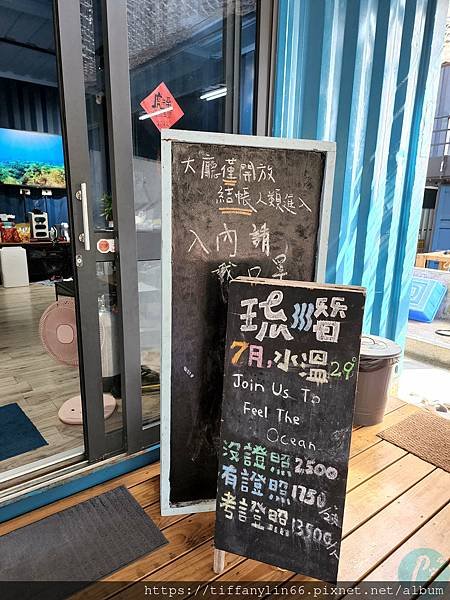 大廳僅開放
結帳人類進入
入內請
戴口罩
琉浪潛
7月,水溫29°
Join Us To
Feel The
Ocean
沒證照2500
有證照1750/人
考證照13500/人
https://tiffanylin66.pixnet.net/album